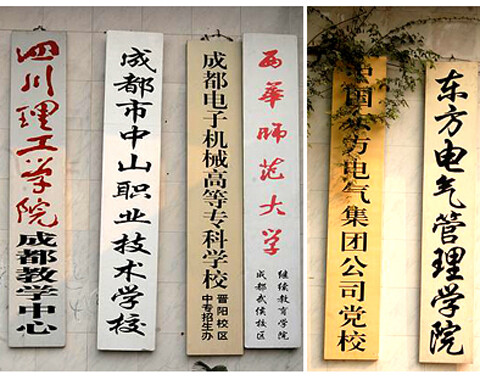 四川理工学院
成都教学中心
成都市中山职业技术学校
成都电子机械高等专科学校
晋阳校区
中专招生办
西华师范大学
继续教育学院
成都武侯校区
中国东方电气集团公司党校
东方电气管理学院